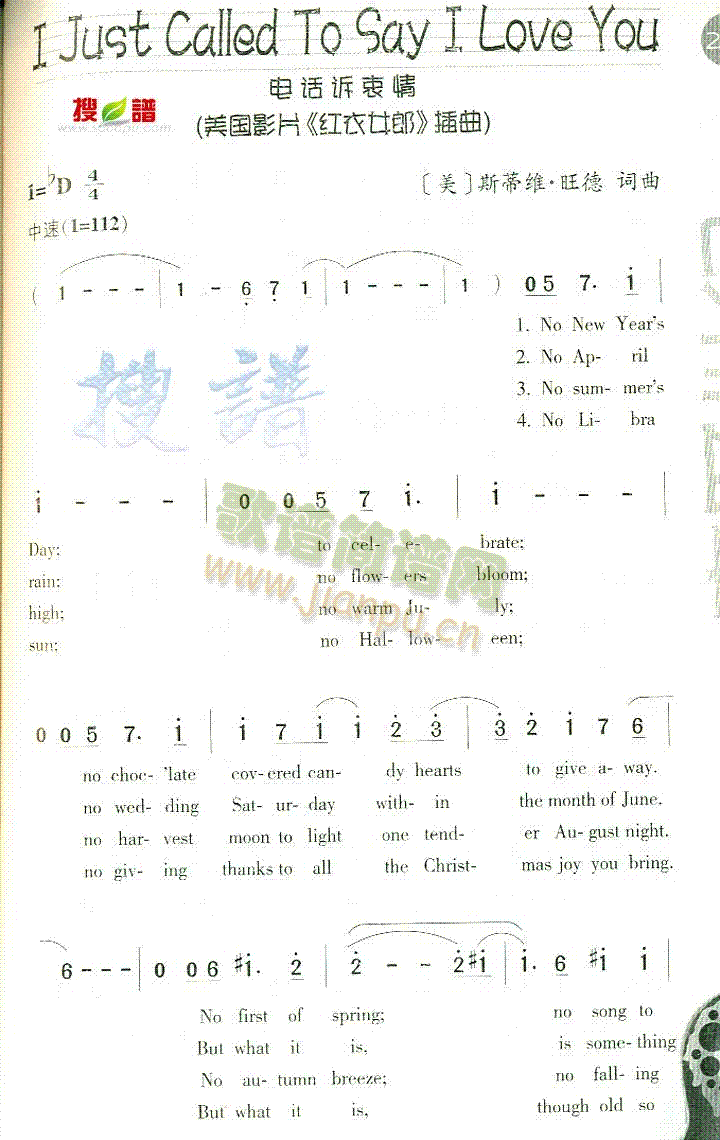 I Just Called To Say I Love You
2
电话诉衷情
搜 譜
(美国影片《红衣女郎》插曲)
1=♭D 4/4
〔美〕斯蒂维·旺德 词曲
中速(1=112)
( 1 - - - | 1 - 6 7 1 | 1 - - - | 1 ) 0 5 7. i |
1. No New Year's
2. No Ap- ril
3. No sum- mer's
4. No Li- bra
搜譜
i - - - | 0 0 5 7 i. | i - - - |
歌谱简谱网
www.jianpu.cn
Day; to cel- e- brate;
rain; no flow- ers bloom;
high; no warm Ju- ly;
sun; no Hal- low- een;
0 0 5 7. i | i 7 i i 2 3 | 3 2 i 7 6
no choc- 'late cov- ered can- dy hearts to give a- way.
no wed- ding Sat- ur- day with- in the month of June.
no har- vest moon to light one tend- er Au- gust night.
no giv- ing thanks to all the Christ- mas joy you bring.
6 - - - | 0 0 6 #i. 2 | 2 - - 2 #i | i. 6 #i i |
No first of spring; no song to
But what it is, is some- thing
No au- tumn breeze; no fall- ing
But what it is, though old so